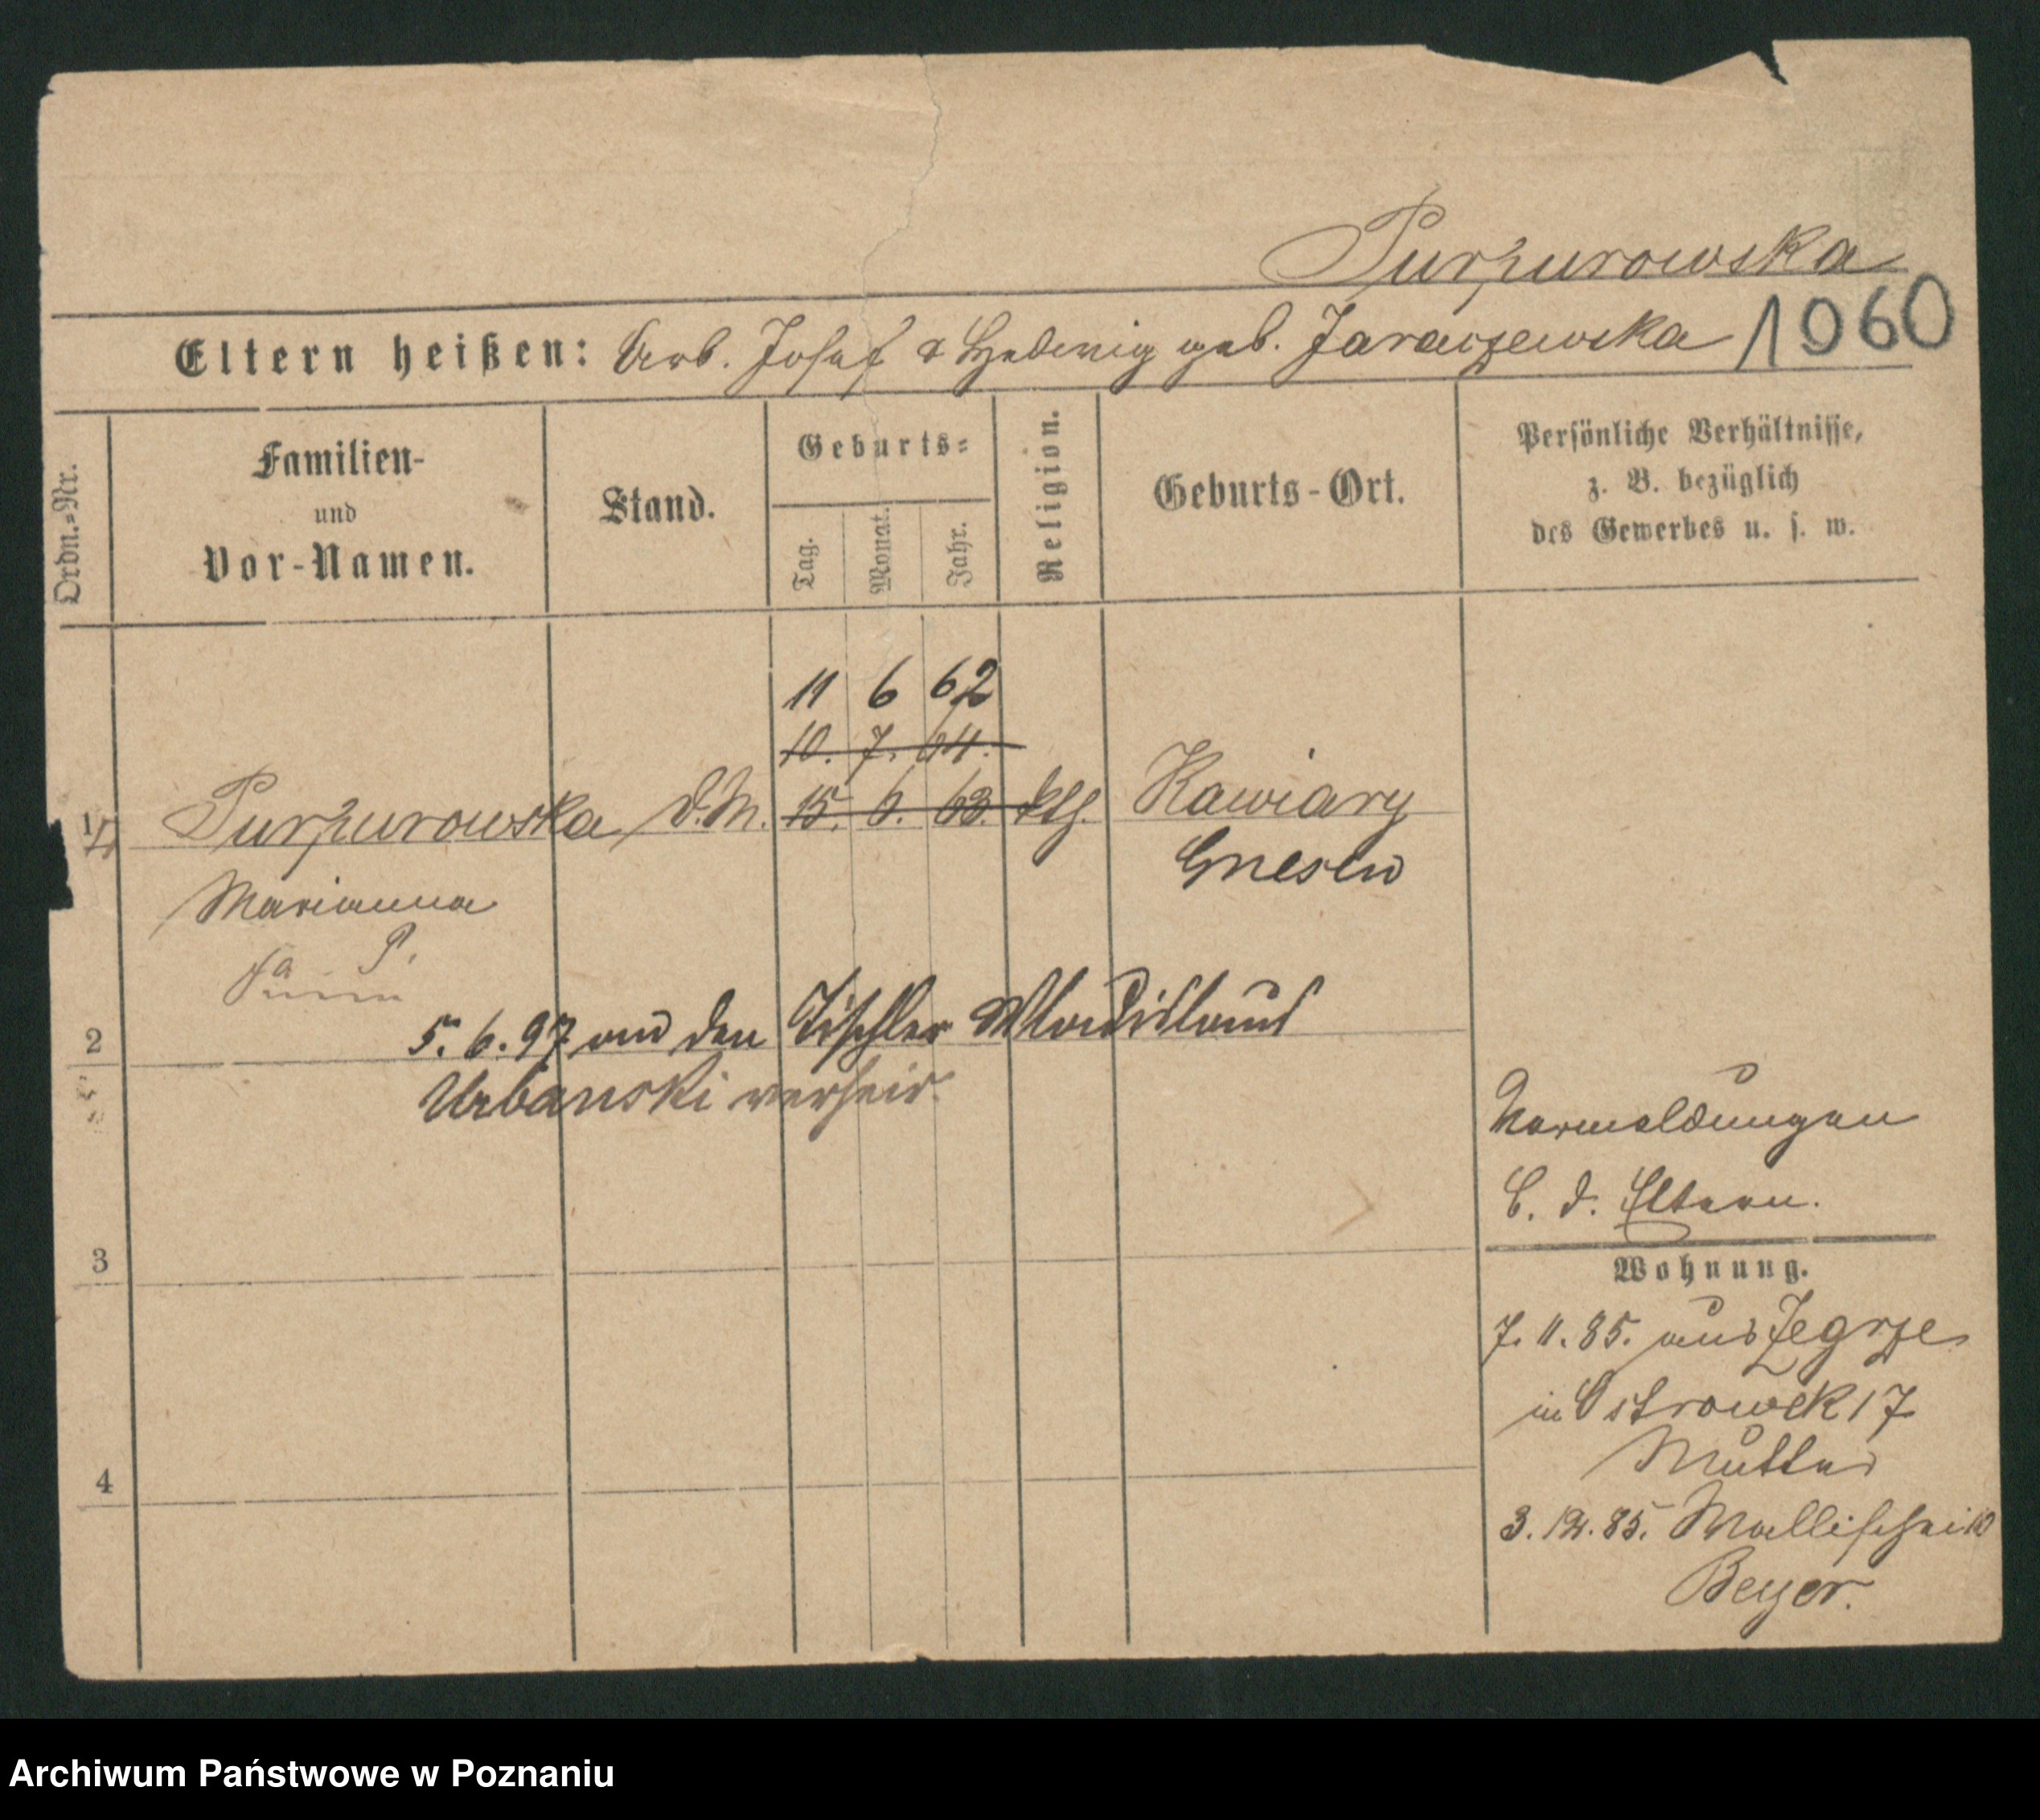 Purpurowska
1960
Eltern heißen: Arb. Josef & Hedwig geb. Jaraczewska
Ordn.=Nr.
Familien-
und
Vor-Namen.
Stand.
Geburts=
Tag.
Monat.
Jahr.
Religion.
Geburts-Ort.
Persönliche Verhältnisse,
z. B. bezüglich
des Gewerbes u. s. w.
11 6 62
10. 7. 64.
1 Purpurowska D.M. 15. 6. 63. kth. Kawiary
Gnesen
Marianna
P.
2
5. 6. 97 an den Tischler Wladislaus
Urbanski verheir.
Vormeldungen
b. d. Eltern.
3
Wohnung.
7. 11. 85. aus Zegrze
in Ostrowek 17
Mutter
4
3. 12. 85. Wallischei 10
Beyer.
Archiwum Państwowe w Poznaniu